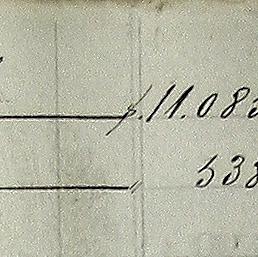 11.083
" 538